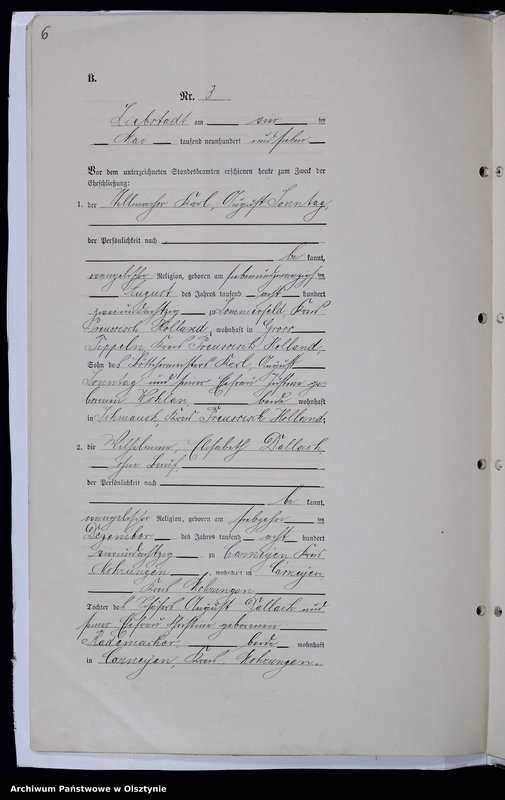 6
B.
Nr. 3
Liebstadt am vier ten
Mai tausend neunhundert und sieben
Vor dem unterzeichneten Standesbeamten erschienen heute zum Zweck der
Eheschließung:
1. der Karl, August Sonntag,
der Persönlichkeit nach
be kannt,
evangelischer Religion, geboren am siebenundzwanzigsten
August des Jahres tausend acht hundert
zweiundachtzig zu Sommerfeld Kreis
Preussisch Holland, wohnhaft in Gross
Teppeln, Kreis Preussisch Holland,
Sohn des Karl, August
Sonntag und seiner Ehefrau Justine ge-
borenen beide wohnhaft
in Schmauch, Kreis Preussisch Holland;
2. die Wilhelmine, Elisabeth Dallach,
ohne Beruf
der Persönlichkeit nach
be kannt,
evangelischer Religion, geboren am siebzehn ten
Dezember des Jahres tausend acht hundert
zweiundachtzig zu Carneyen Kreis
Mohrungen, wohnhaft in Carneyen
Kreis Mohrungen
Tochter des August Dallach und
seiner Ehefrau geborenen
Rademacher, beide wohnhaft
in Carneyen, Kreis Mohrungen.
Archiwum Państwowe w Olsztynie